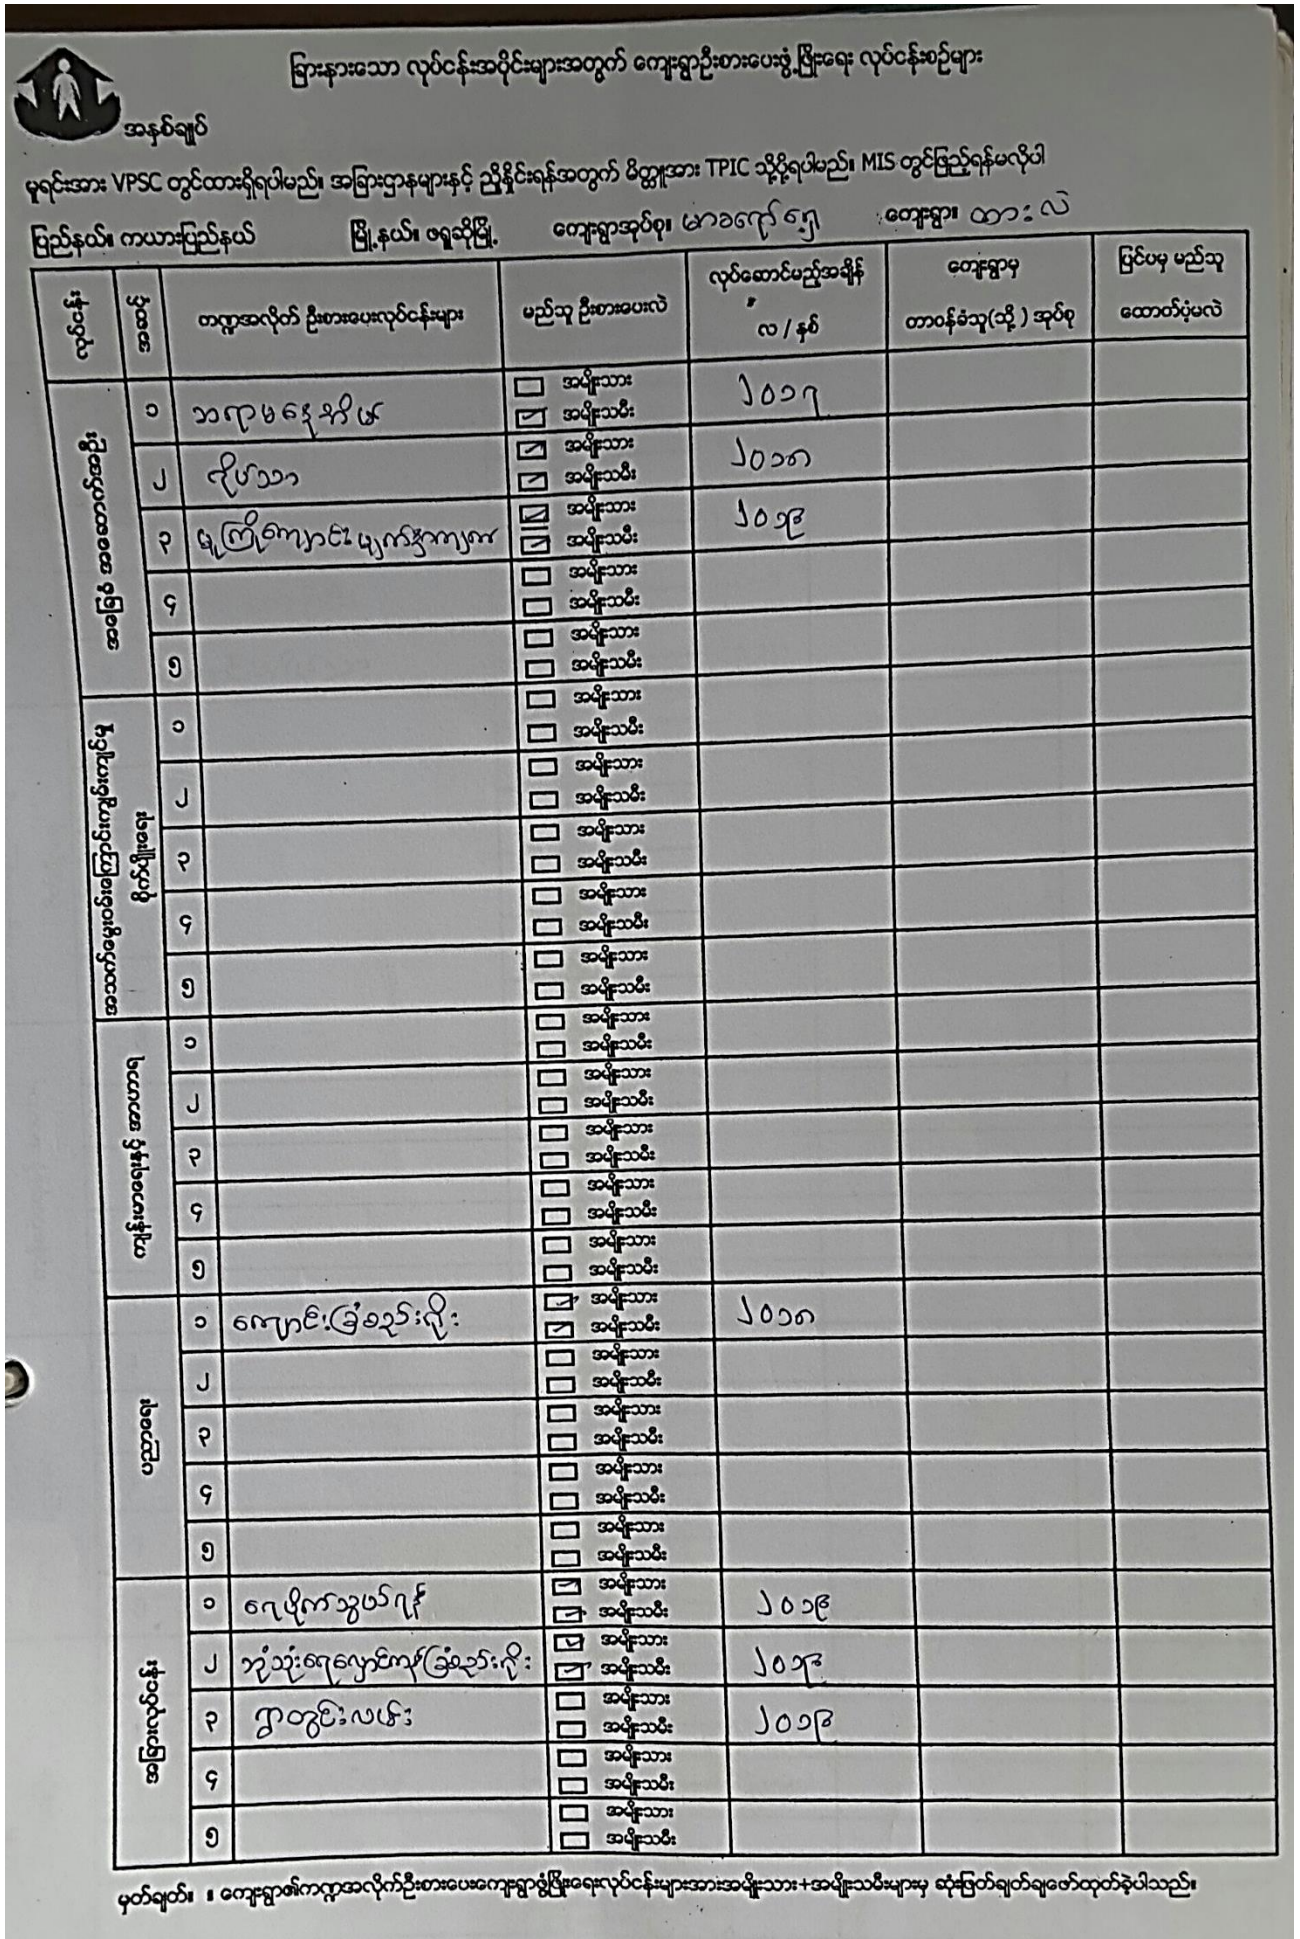 ခြားနားသော လုပ်ငန်းအပိုင်းများအတွက် ကျေးရွာဦးစားပေးဖွံ့ဖြိုးရေး လုပ်ငန်းစဉ်များ
အနှစ်ချုပ်
မူရင်းအား VPSC တွင်ထားရှိရပါမည်။ အခြားဌာနများနှင့် ညှိနှိုင်းရန်အတွက် မိတ္တူအား TPIC သို့ပို့ရပါမည်။ MIS တွင်ဖြည့်ရန်မလိုပါ
ပြည်နယ်။ ကယားပြည်နယ် မြို့နယ်။ ဖရူဆိုမြို့ ကျေးရွာအုပ်စု။ ကျေးရွာ။ ထားလဲ
လုပ်ငန်း အဆင့် ကဏ္ဍအလိုက် ဦးစားပေးလုပ်ငန်းများ မည်သူ ဦးစားပေးလဲ လုပ်ဆောင်မည့်အချိန် လ / နှစ် ကျေးရွာမှ တာဝန်ခံသူ(သို့) အုပ်စု ပြင်ပမှ မည်သူ ထောက်ပံ့မလဲ
အမျိုးသား
၁ ဆရာမနေအိမ် အမျိုးသမီး ၂၀၁၇
အမျိုးသား
၂ ကိုယ်သာ အမျိုးသမီး ၂၀၁၈
အမျိုးသား
၃ မူကြိုကျောင်းမျက်နှာကျက် အမျိုးသမီး ၂၀၁၉
အမျိုးသား
၄ အမျိုးသမီး
အမျိုးသား
၅ အမျိုးသမီး
အမျိုးသား
၁ အမျိုးသမီး
အမျိုးသား
၂ အမျိုးသမီး
အမျိုးသား
၃ အမျိုးသမီး
အမျိုးသား
၄ အမျိုးသမီး
အမျိုးသား
၅ အမျိုးသမီး
အမျိုးသား
၁ အမျိုးသမီး
အမျိုးသား
၂ အမျိုးသမီး
အမျိုးသား
၃ အမျိုးသမီး
အမျိုးသား
၄ အမျိုးသမီး
အမျိုးသား
၅ အမျိုးသမီး
ပညာရေး
အမျိုးသား
၁ ကျောင်းခြံစည်းရိုး အမျိုးသမီး ၂၀၁၈
အမျိုးသား
၂ အမျိုးသမီး
အမျိုးသား
၃ အမျိုးသမီး
အမျိုးသား
၄ အမျိုးသမီး
အမျိုးသား
၅ အမျိုးသမီး
အခြားလုပ်ငန်း
အမျိုးသား
၁ ရေပိုက်သွယ်ရန် အမျိုးသမီး ၂၀၁၉
အမျိုးသား
၂ ဘုံသုံးရေလှောင်ကန်ခြံစည်းရိုး အမျိုးသမီး ၂၀၁၉
အမျိုးသား
၃ ရွာတွင်းလမ်း အမျိုးသမီး ၂၀၁၉
အမျိုးသား
၄ အမျိုးသမီး
အမျိုးသား
၅ အမျိုးသမီး
မှတ်ချက်။ ။ ကျေးရွာ၏ကဏ္ဍအလိုက်ဦးစားပေးကျေးရွာဖွံ့ဖြိုးရေးလုပ်ငန်းများအားအမျိုးသား+အမျိုးသမီးများမှ ဆုံးဖြတ်ချက်ချဖော်ထုတ်ခဲ့ပါသည်။